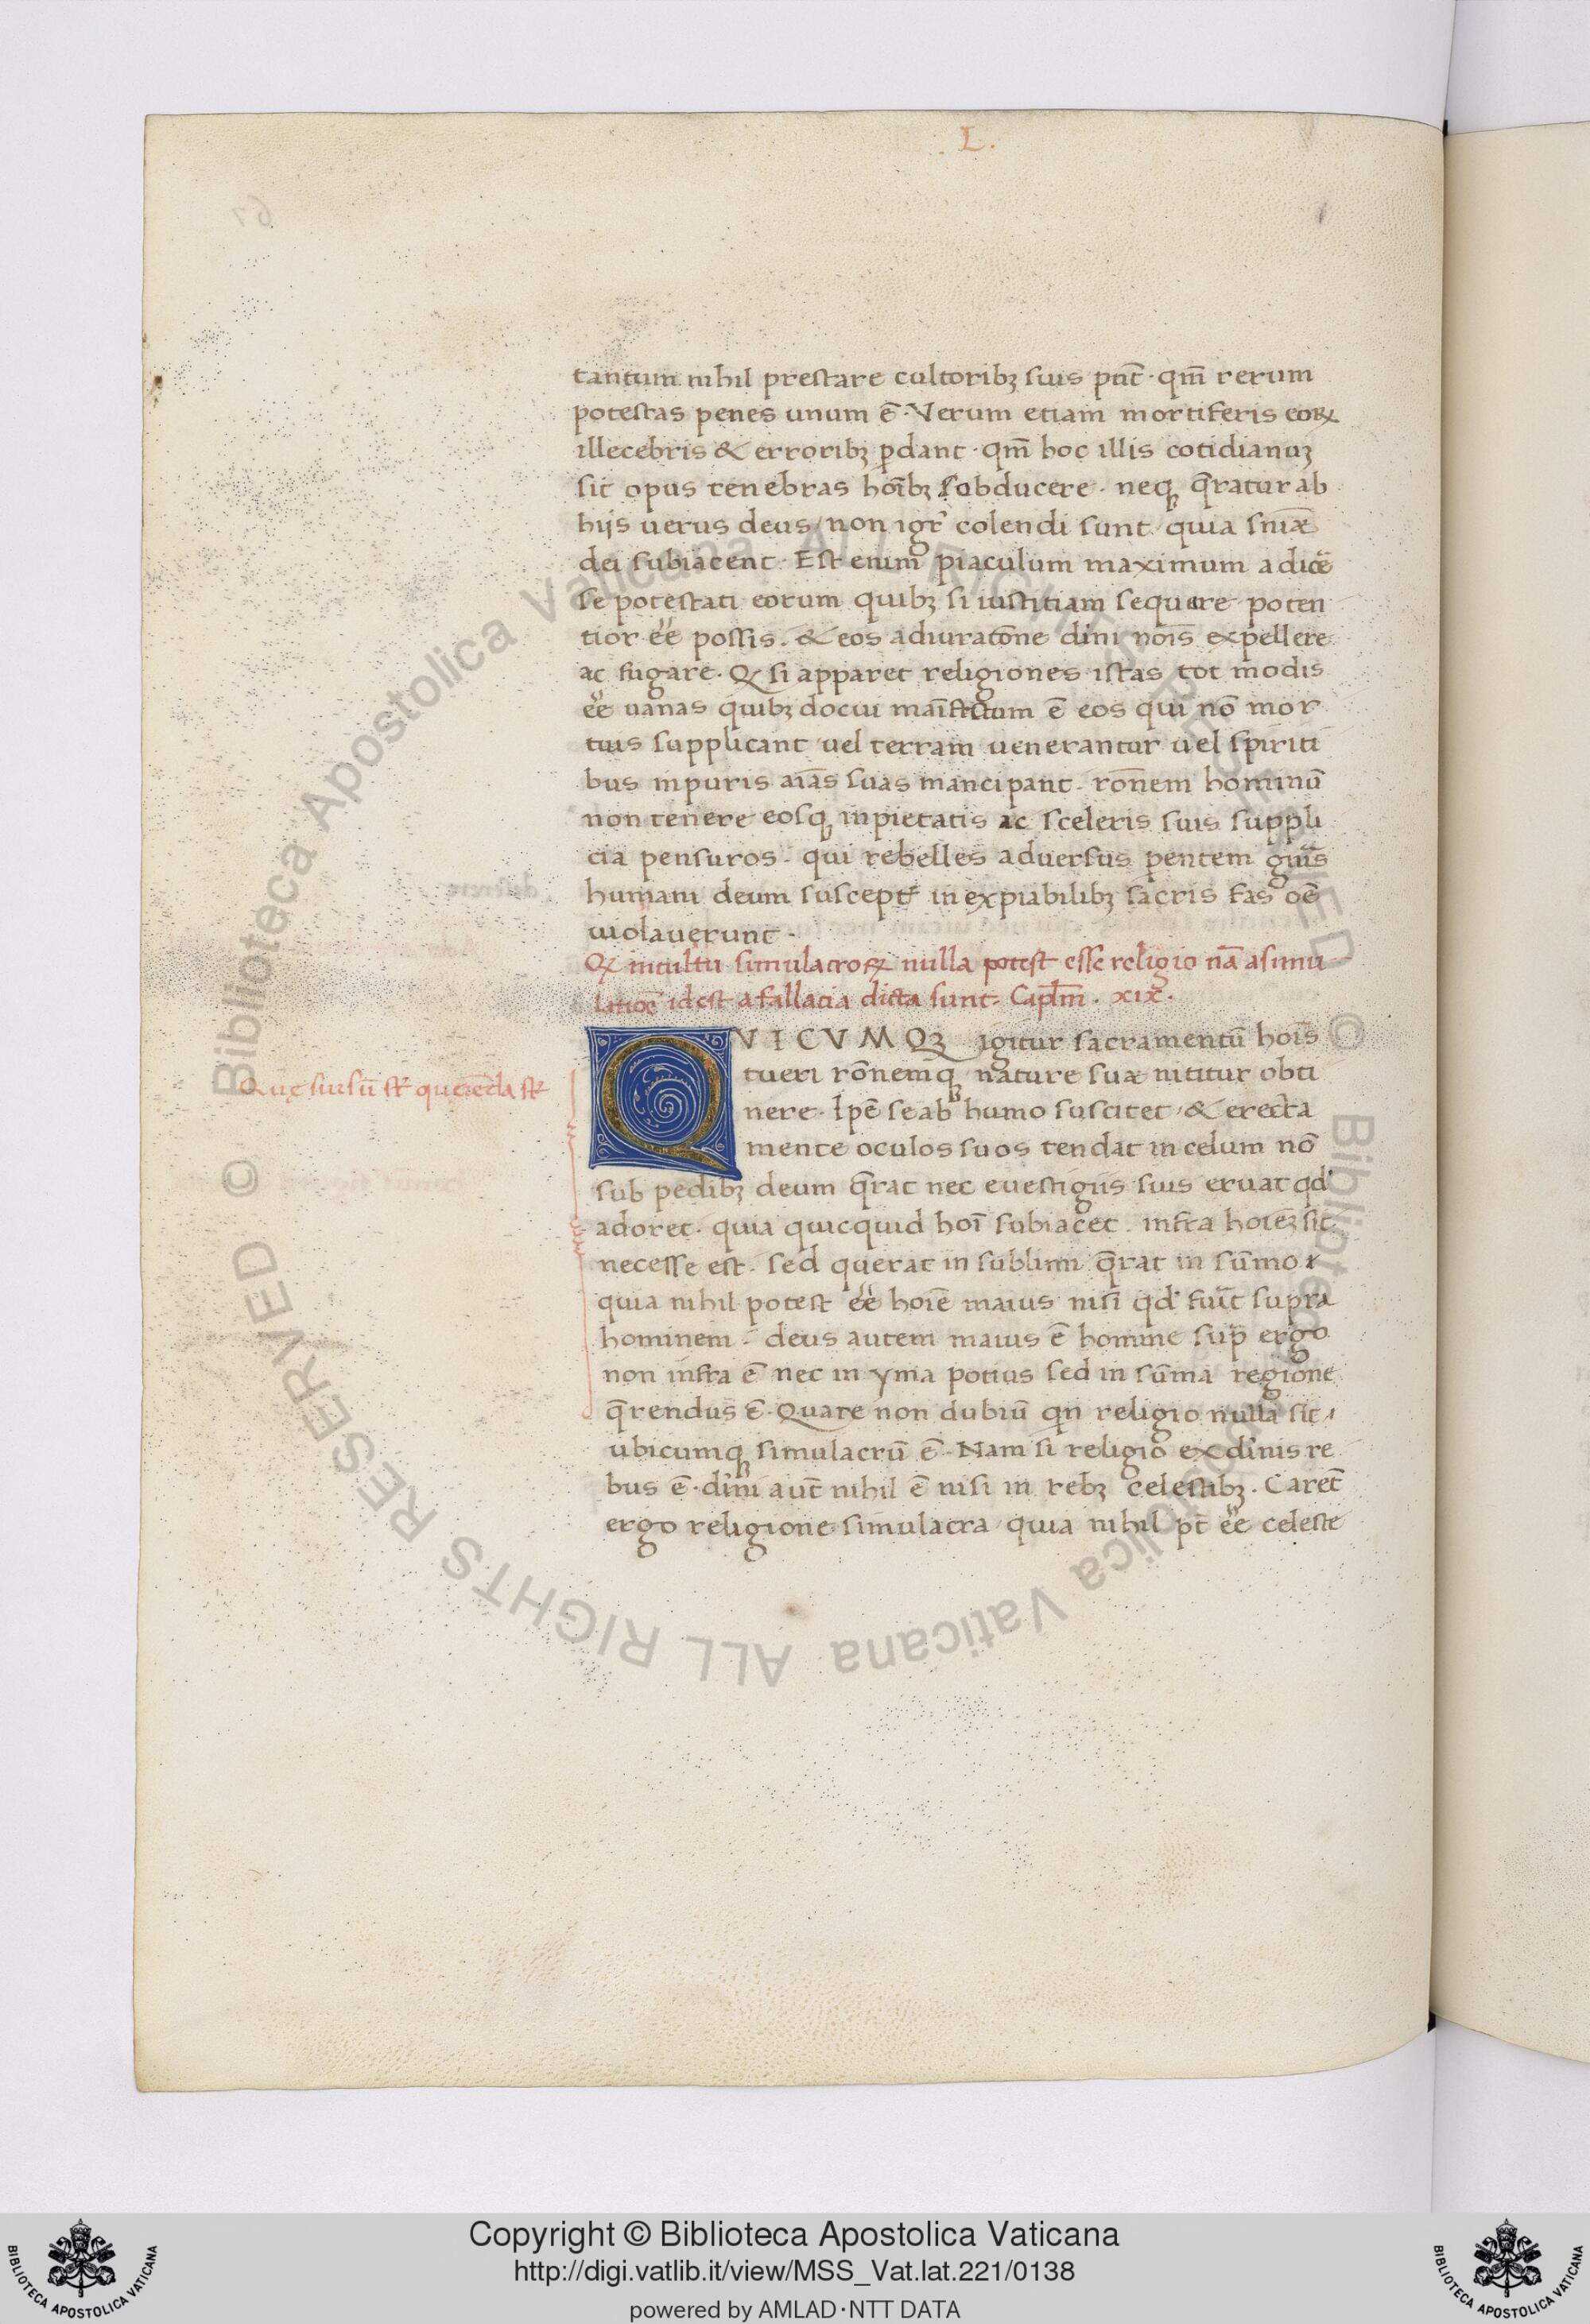 L.
tantum nihil prestare cultoribꝫ suis pñt · qm̃ rerum
potestas penes unum ē · Verum etiam mortiferis eoꝝ
illecebris & erroribꝫ ꝑdant · qm̃ hoc illis cotidianuꝫ
sit opus tenebras hoı̃bꝫ sobducere · neqꝫ q̄ratur ab
hijs uerus deus / non igr̃ colendi sunt / quia sn̄iæ
dei subiacent · Est enim piaculum maximum adicẽ
se potestati eorum quibꝫ si iustitiam sequare poten
tior ẽe possis . & eos adiuratõne diñi nois̃ expellere
ac fugare . Qꝫ si apparet religiones istas tot modis
ẽe uanas quibꝫ docui maı̃festum ē eos qui nõ mor
tuis supplicant uel terram uenerantur uel spiriti
bus inpuris aı̃as suas mancipant . rõnem hominũ
non tenere eosqꝫ inpietatis ac sceleris suis suppli
cia pensuros . qui rebelles aduersus ꝑentem gñis
humani deum susceptꝭ inexpiabilibꝫ sacris fas oẽ
uiolauerunt .
Qꝫ in cultu simulacroꝝ nulla potest esse religio nã a simu
latiõe id est a fallacia dicta sunt . Capl̃m . xix .
QVICVMQꝫ igitur sacramentũ hois̃
tueri rõnemqꝫ nature suæ nititur obti
nere . Ip̃e se ab humo suscitet / & erecta
mente oculos suos tendat in celum nõ
sub pedibꝫ deum q̄rat nec e uestigiis suis eruat qd̃
adoret . quia quicquid hoı̃ subiacet . infra hoı̃eꝫ sit
necesse est . sed querat in sublimi q̄rat in sũmo
quia nihil potest ẽe hoı̃e maius nisi qd̃ fuit̃ supra
hominem . deus autem maius ē homine sup̃ ergo
non infra ē nec in yma potius sed in sũma regione
q̄rendus ē . Quare non dubiũ qñ religio nulla sit /
ubicumqꝫ simulacrũ ē . Nam si religio ex diñis re
bus ē . diñi aut̃ nihil ē nisi in rebꝫ celestibꝫ . Caret̃
ergo religione simulacra / quia nihil pt̃ ẽe celeste
Copyright © Biblioteca Apostolica Vaticana
http://digi.vatlib.it/view/MSS_Vat.lat.221/0138
powered by AMLAD·NTT DATA
BIBLIOTECA APOSTOLICA VATICANA
BIBLIOTECA APOSTOLICA VATICANA
© Biblioteca Apostolica Vaticana ALL RIGHTS RESERVED
© Biblioteca Apostolica Vaticana ALL RIGHTS RESERVED